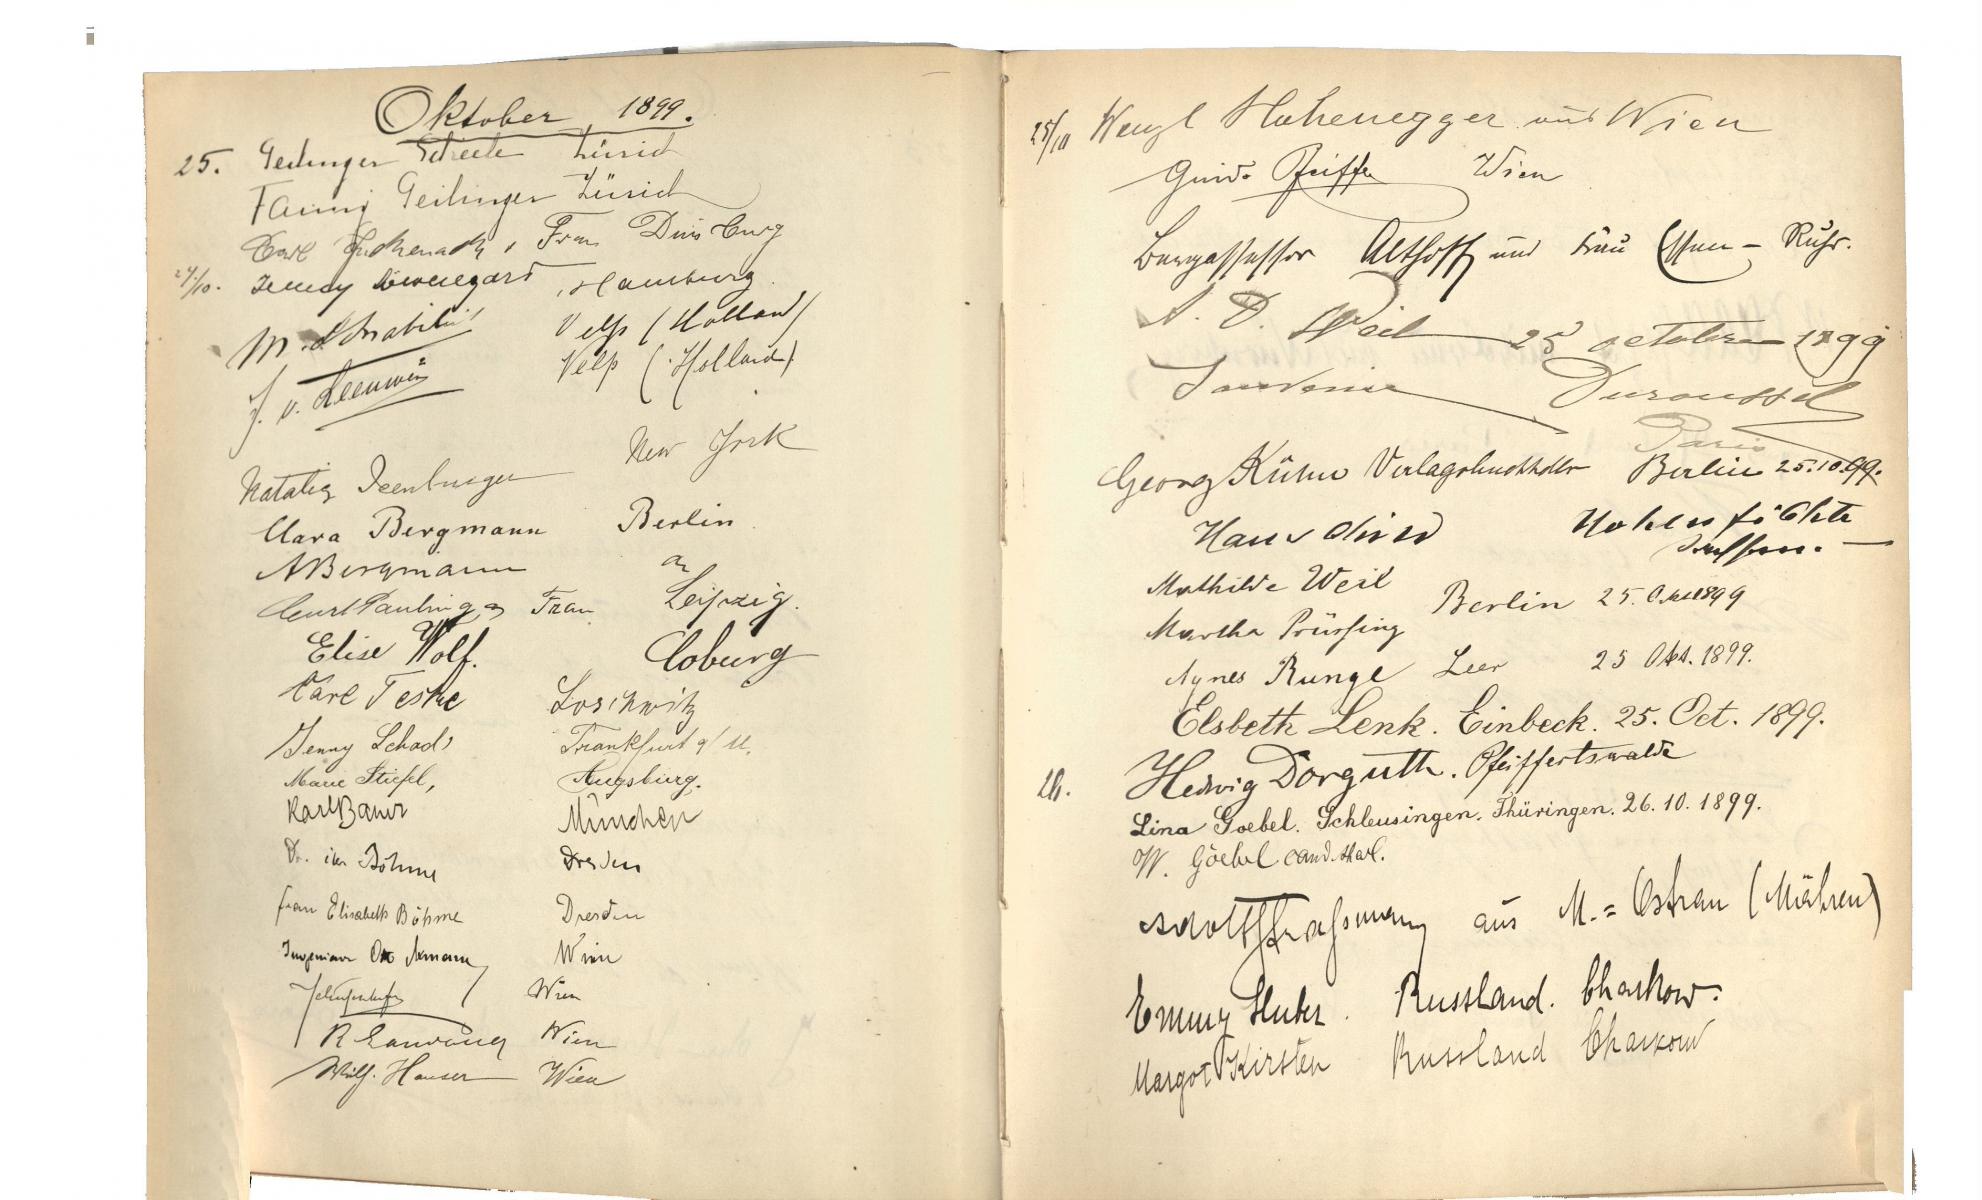 Oktober 1899.
25. Geilinger Zürich
Fanny Geilinger Zürich
Carl Frau Duisburg
24/10. Hamburg
M. Velp (Holland)
J. v. Leeuwen Velp (Holland)
New York
Natalie Isenburger
Clara Bergmann Berlin
A Bergmann
Curt Pauling & Frau Leipzig.
Elise Wolf. Coburg
Carl Teske Loschwitz
Jenny Schad Frankfurt a/M.
Marie Stiefel, Augsburg.
Karl Bauer München
Dr. Böhme Dresden
Frau Elisabeth Böhme Dresden
Ingenieur Wien
Wien
R Wien
Wilh. Hauser Wien
25/10 Wenzl Hohenegger aus Wien
Guido Pfeiffer Wien
Bergassessor Althoff und Frau Essen - Ruhr.
A. D. Weil 25 octobre 1899
Duroussel
Paris
Georg Kühn Verlagsbuchhdlr Berlin 25.10.99.
Hans
Mathilde Weil
Berlin 25. Okt 1899
Martha Prüssing
Agnes Runge Leer 25 Okt. 1899.
Elsbeth Lenk. Einbeck. 25. Oct. 1899.
26. Hedwig Dorguth. Pfeiffertswalde
Lina Goebel. Schleusingen. Thüringen. 26.10.1899.
W. Goebel cand.
Adolf Strassmann aus M.=Ostrau (Mähren)
Emmy Huber. Russland. Charkow.
Margot Kirsten Russland Charkow